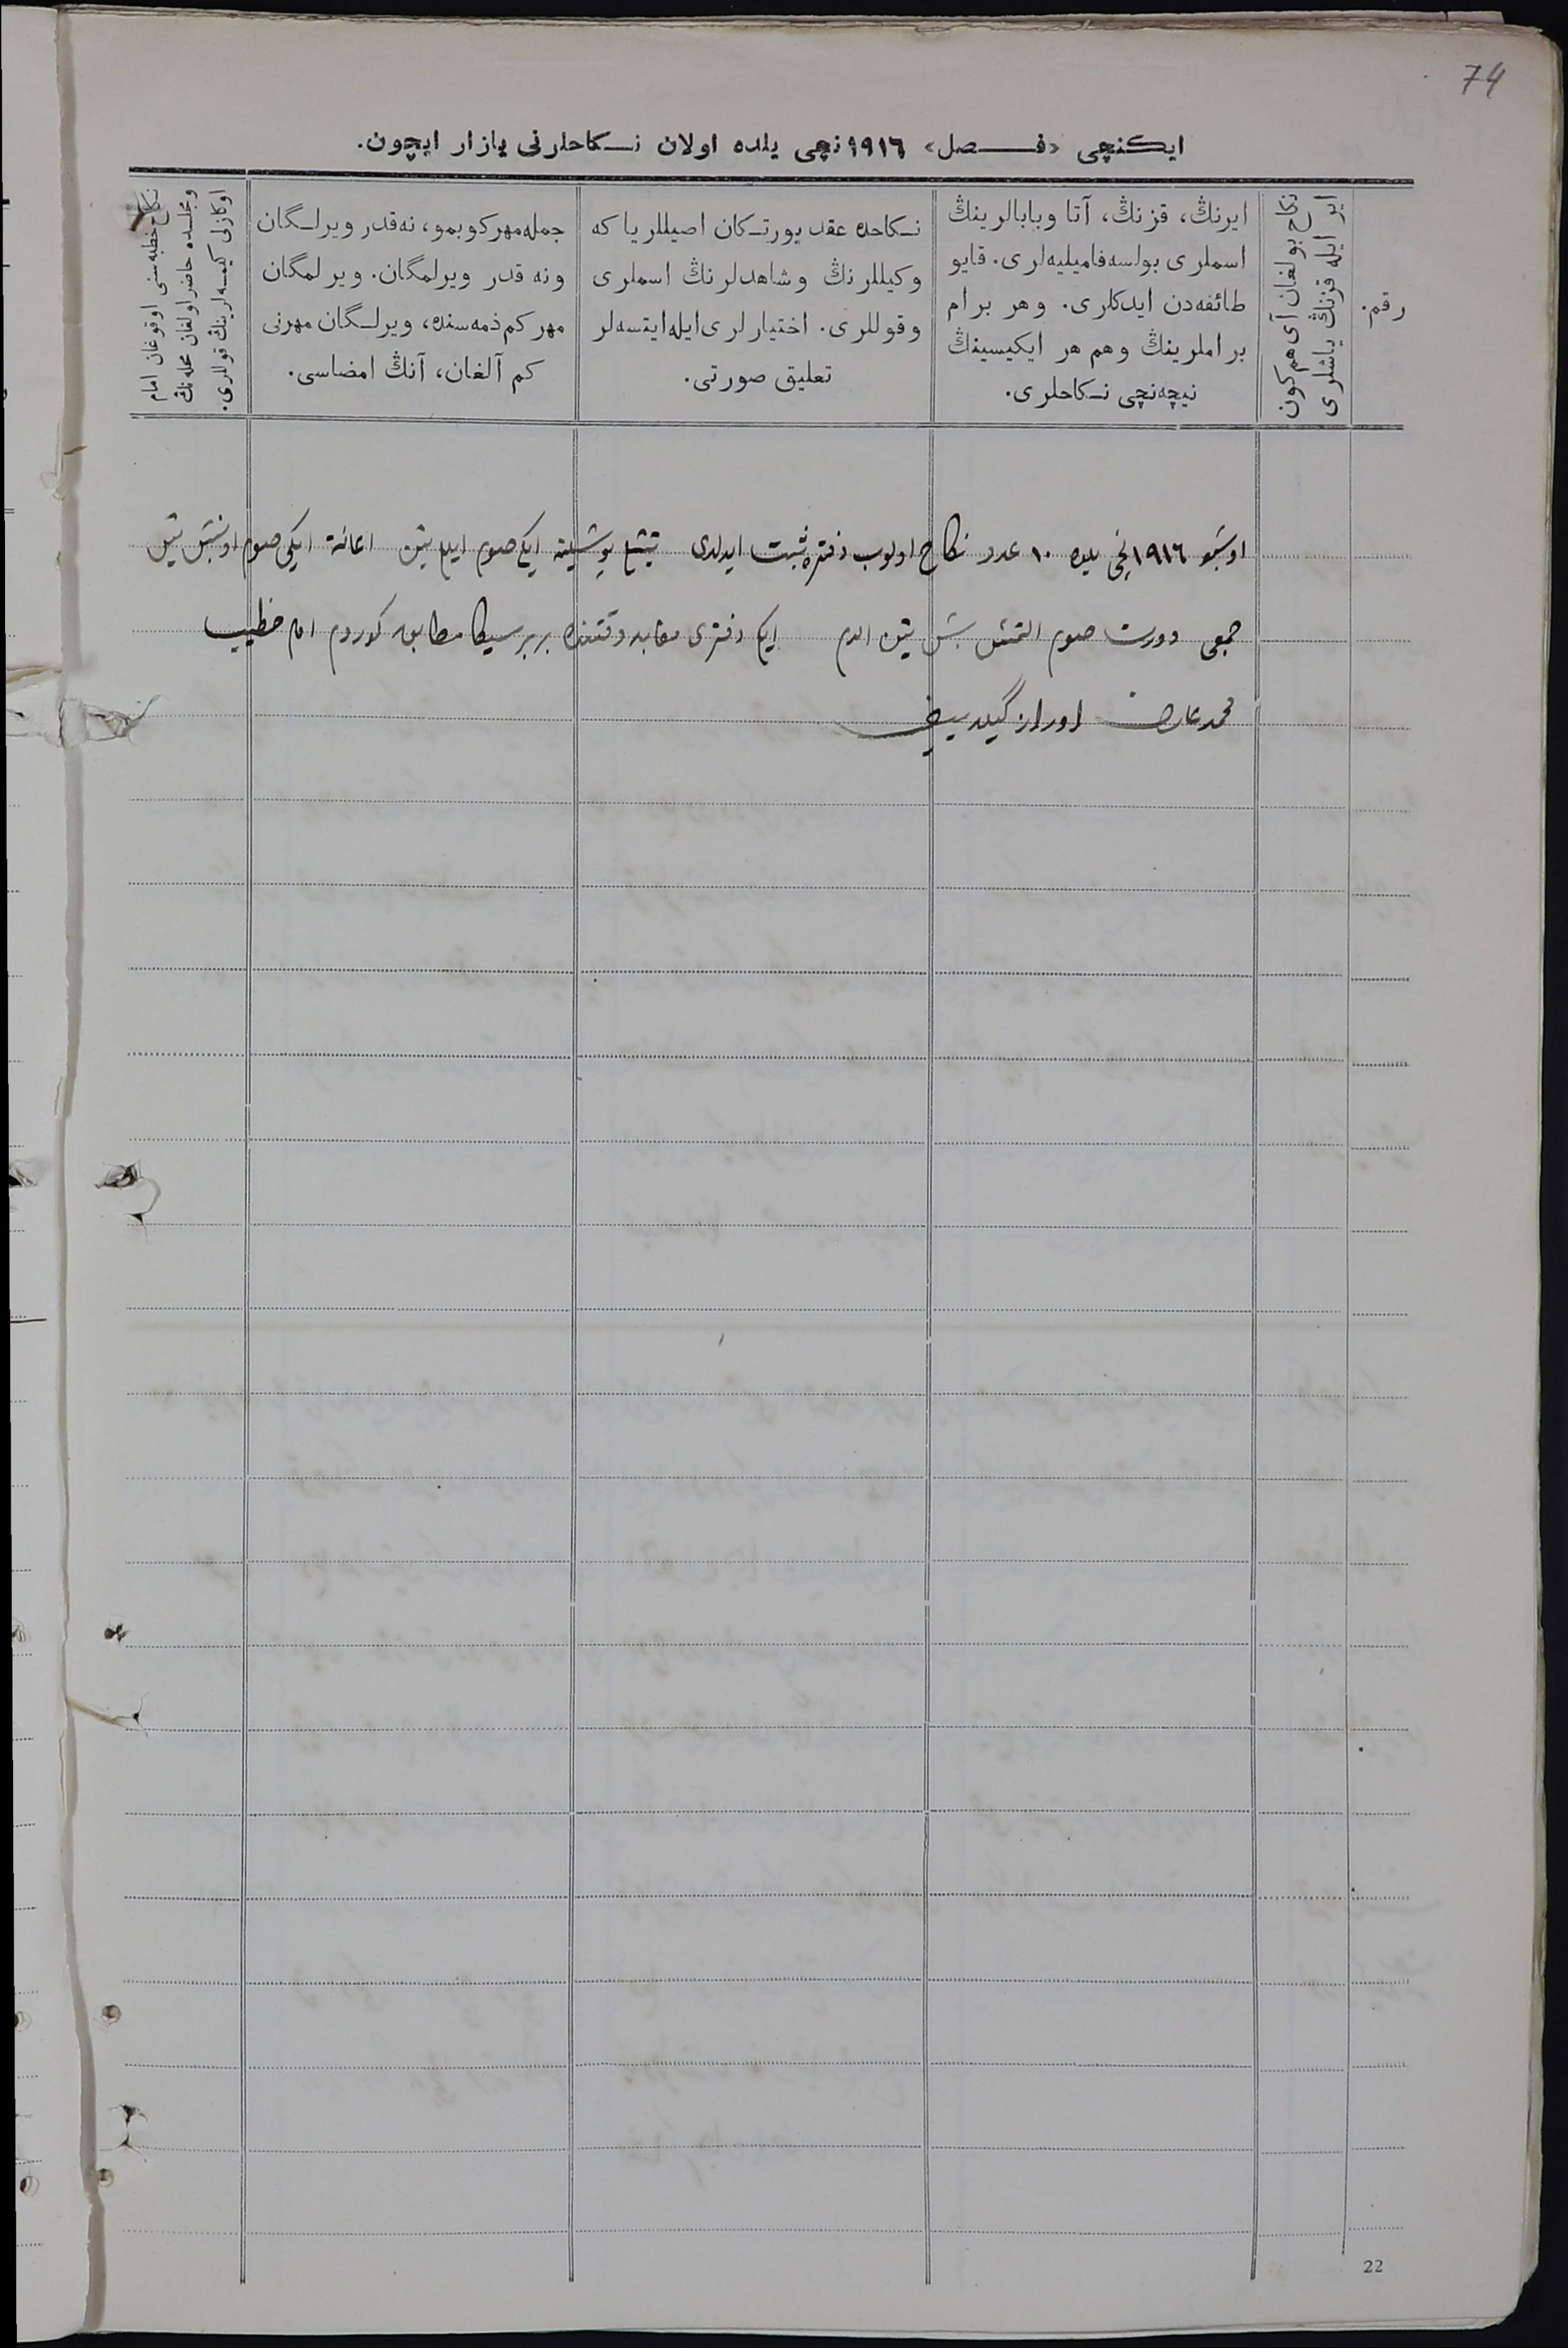 74
ایکنچی «فـصل» ۱۹۱٦ نچی یلده اولان نـکاحلرنی یازار ایچون.
رقم.
نکاح بولغان آی هم کون
ایر ایله قزنڭ یاشلری
ایرنڭ، قزنڭ، آتا وبابالرینڭ
اسملری بولسه فامیلیه‌لری. قایو
طائفه‌دن ایدکلری. وهر برام
براملرینڭ وهم هر ایکیسینڭ
نیچه‌نچی نـکاحلری.
نـکاحده عقد یورتـکان اصیللریا که
وکیللرنڭ وشاهدلرنڭ اسملری
وقوللری. اختیارلری ایله ایتسه‌لر
تعلیق صورتی.
جمله مهر کوبمو، نه‌قدر ویرلـگان
ونه قدر ویرلمگان. ویرلمگان
مهر کم ذمه‌سنده، ویرلـگان مهرنی
کم آلغان، آنڭ امضاسی.
نکاح خطبه‌سنی اوقوغان امام
ومجلسده حاضر اولغان محله‌نڭ
اوکازلی کیمسه‌لرینڭ قوللری.
اوشبو ۱۹۱٦نچی یلده ۱۰ عدد نکاح اولوب دفتره ثبت ایدلدی ایکی صوم ایللی تین اعانة ایکی صوم اونبش تین
جمعی دورت صوم التمش بش تین الدم ایکی دفتری مقابله وقتنده بر برسیکا مطابق کوردم امام خطیب
محمد عارف
22